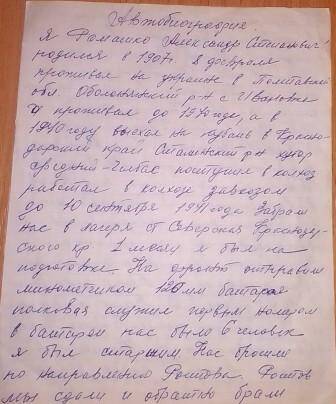 Автобиография
Я Фоменко Александр Степанович
родился в 1907г. 8 февраля
проживал на украине в Полтавской
обл. Оболонский р-н с Ивановка
и проживал до 1940 году, а в
1940 году выехал на кубань в
край Сталинский р-н хутор
средний поступил в колхоз
работал в колхозе завхозом
до 10 сентября 1941 года Забрали
нас в лагеря ст Северская
кр 1 месяц я был на
подготовке. На фронт отправили
минометчиком 120мм батарея
полковая служил первым номером
в батареи нас было 6 человек
я был старшим. Нас бросили
по направлению Ростова. Ростов
мы сдали и обратно брали